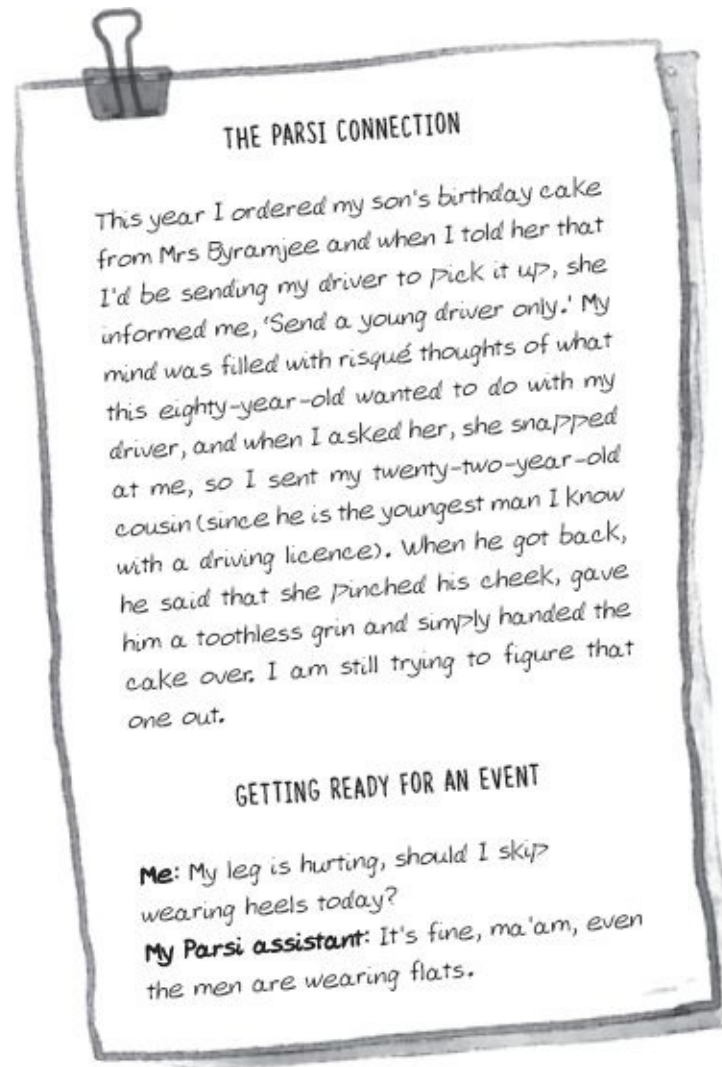 THE PARSI CONNECTION
This year I ordered my son's birthday cake
from Mrs Byramjee and when I told her that
I'd be sending my driver to pick it up, she
informed me, 'Send a young driver only.' My
mind was filled with risqué thoughts of what
this eighty-year-old wanted to do with my
driver, and when I asked her, she snapped
at me, so I sent my twenty-two-year-old
cousin (since he is the youngest man I know
with a driving licence). When he got back,
he said that she pinched his cheek, gave
him a toothless grin and simply handed the
cake over. I am still trying to figure that
one out.
GETTING READY FOR AN EVENT
Me: My leg is hurting, should I skip
wearing heels today?
My Parsi assistant: It's fine, ma'am, even
the men are wearing flats.